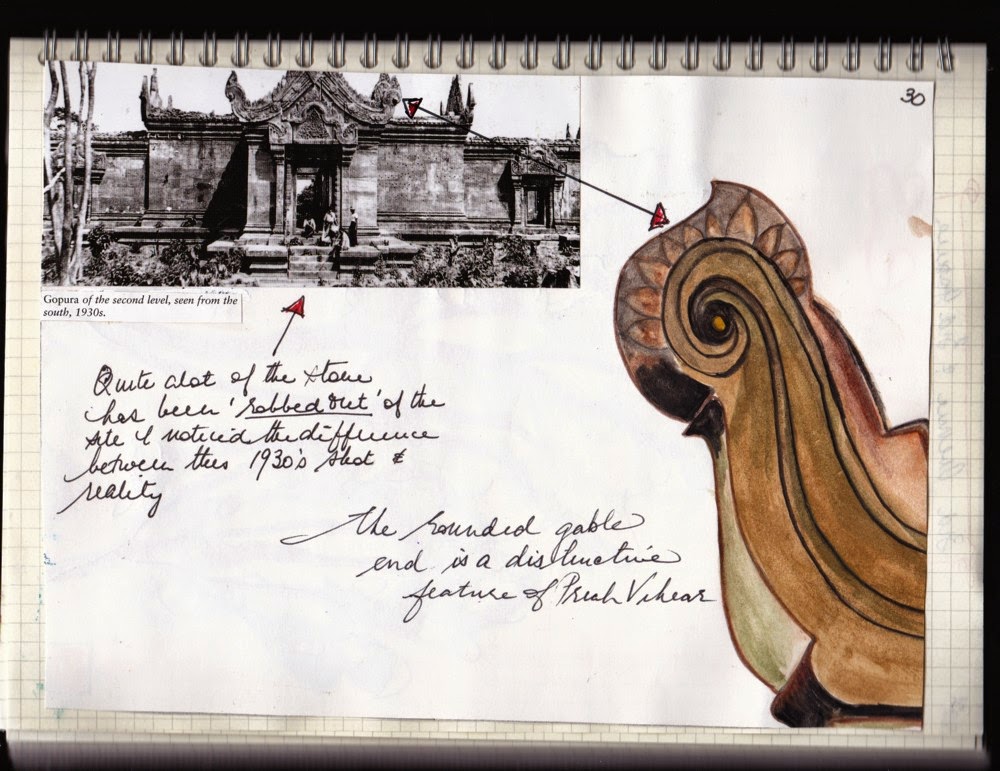 30
Gopura of the second level, seen from the
south, 1930s.
Quite alot of the stone
has been 'robbed out' of the
site & noticed the difference
between this 1930's shot &
reality
The rounded gable
end is a distinctive
feature of Preah Vihear